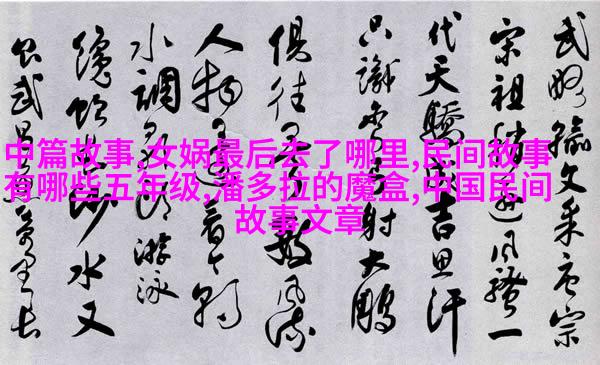 中篇故事,女娲最后去了哪里,民间故事
有哪些五年级,潘多拉的魔盒,中国民间
故事文章
武略输文采唐宗
宋祖稍逊风骚一
代天驕成吉思汗
只識弯弓射大鵰
俱往矣数风流
人物还看今朝
水調歌头游泳
纔飲长沙水又
食武昌魚万里长